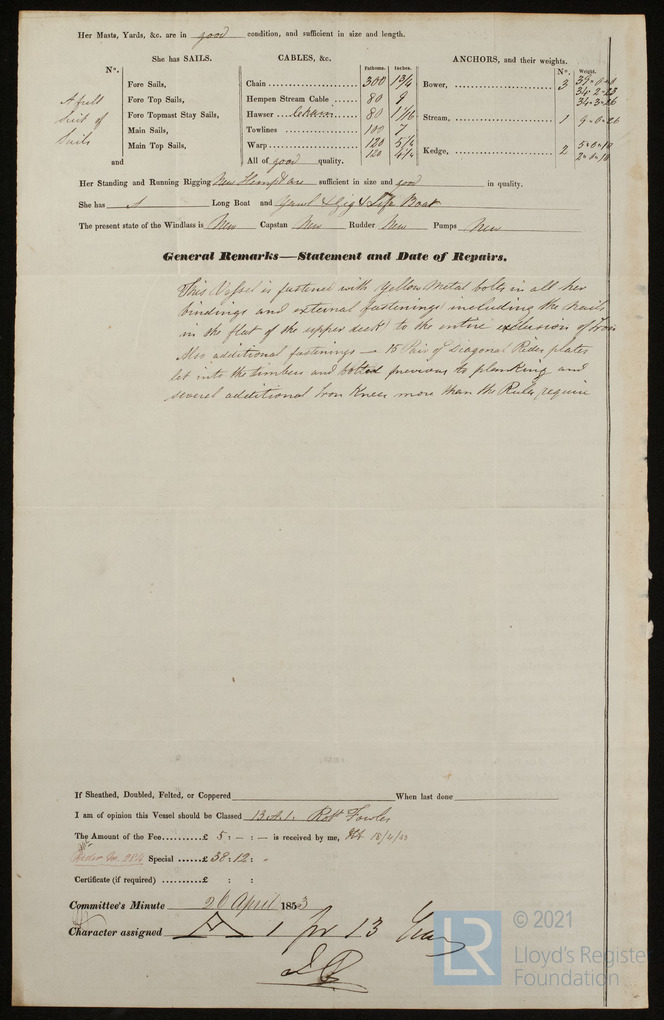 Her Masts, Yards, &c. are in good condition, and sufficient in size and length.
She has SAILS.
CABLES, &c.
ANCHORS, and their weights.
Nº.
Fathoms.
Inches.
Nº.
Weight.
A full
suit of
Sails
and
Fore Sails,
Fore Top Sails,
Fore Topmast Stay Sails,
Main Sails,
Main Top Sails,
Chain 300 1 3/4
Hempen Stream Cable 80 9
Hawser 80 1 1/16
Towlines 100 7
Warp 120 5 1/2
120 4 1/2
All of good quality.
Bower, 3
34·2·23
34·3·26
Stream, 1 9·0·26
Kedge, 2 5·0·10
2·0·10
Her Standing and Running Rigging New Hemp & are sufficient in size and good in quality.
She has A Long Boat and Yawl & Gig & Life Boat
The present state of the Windlass is New Capstan New Rudder New Pumps New
General Remarks—Statement and Date of Repairs.
This Vessel is fastened with Yellow Metal bolts in all her
bindings and external fastenings including the nails
in the flat of the upper deck to the entire exclusion of Iron
Also additional fastenings — 15 Pair of Diagonal Rider plates
let into the timbers and bolted previous to planking and
several additional Iron Knees more than the Rules require
If Sheathed, Doubled, Felted, or Coppered When last done
I am of opinion this Vessel should be Classed 13 A 1. Robt Fowles
The Amount of the Fee..........£ 5 : – : – is received by me, 18/4/53
Special ......£ 38 : 12 : -
Certificate (if required) ..........£ : :
Committee's Minute 26 April 1853
Character assigned A 1 for 13 Years
© 2021
LR
Lloyd's Register
Foundation